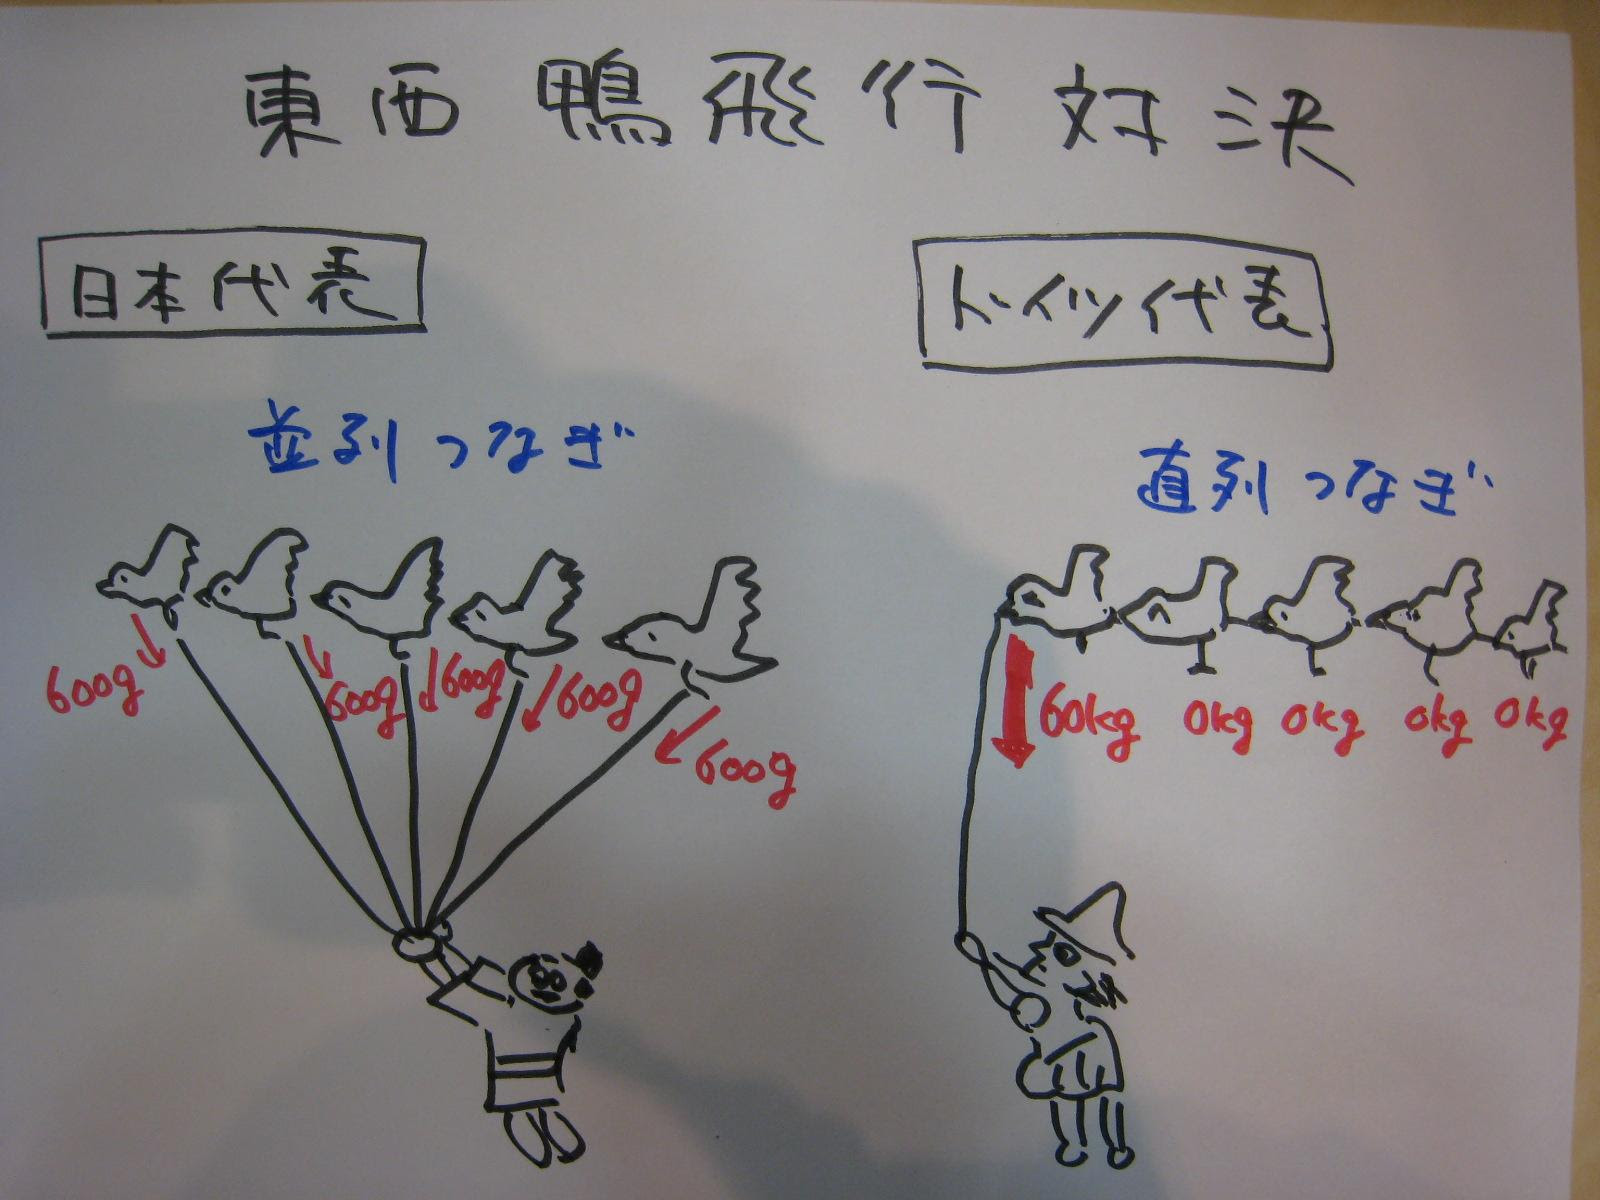 東西鴨飛行対決
日本代表
ドイツ代表
並列つなぎ
直列つなぎ
600g
600g
600g
600g
600g
60kg
0kg
0kg
0kg
0kg